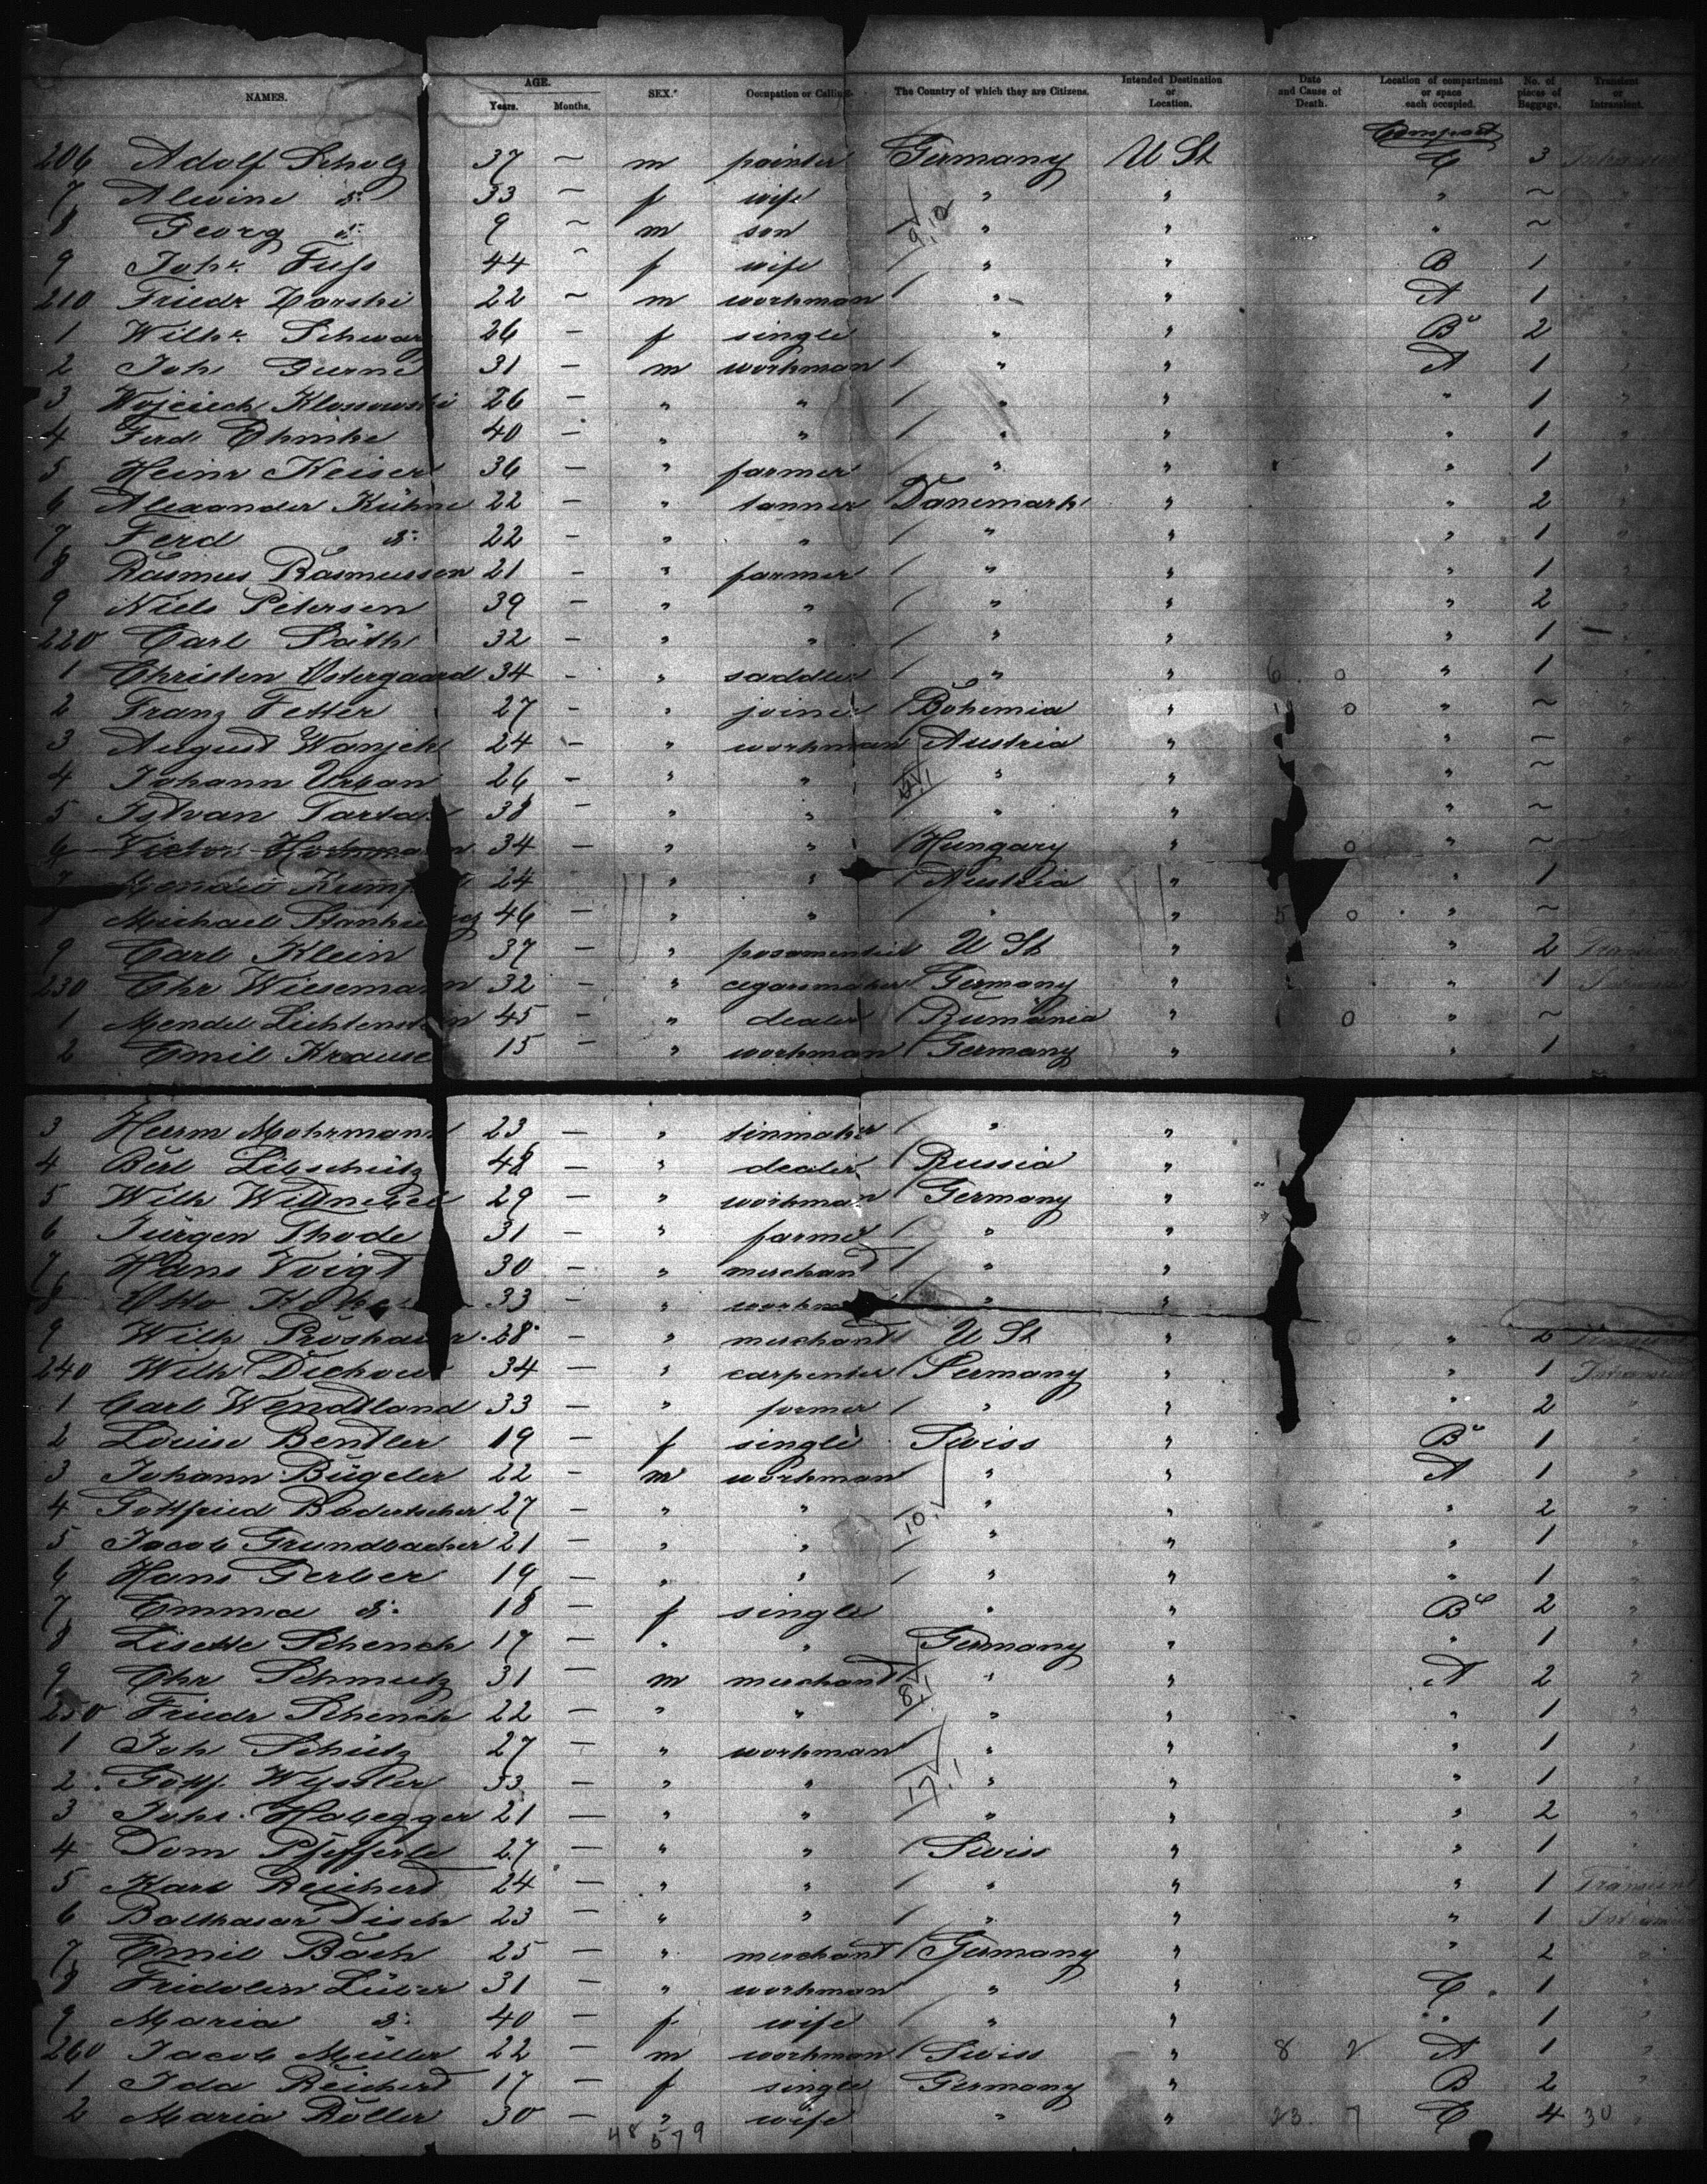 NAMES. AGE. Years. Months. SEX. Occupation or Calling. The Country of which they are Citizens. Intended Destination or Location. Date and Cause of Death. Location of compartment or space each occupied. No. of pieces of Baggage. Transient or Intransient.
Compart
206 Adolf Scholz 37 ~ m painter Germany U St C 3
7 Alwine d: 33 ~ f wife " " " ~
8 Georg d: 9 ~ m son " " " ~
9 Johe. Fuss 44 ~ f wife " " B 1
210 Friedr 22 ~ m workman " " A 1
1 Wilhe. Schwarz 26 - f single " " B 2
2 Joh 31 - m workman " " A 1
3 Wojciech Klossowski 26 - " " " " " 1
4 Ferd 40 - " " " " " 1
5 Heinr Keiser 36 - " farmer " " " 1
6 Alexander Kühne 22 - " tanner Danemark " " 2
7 Ferd d: 22 - " " " " " 1
8 Rasmus Rasmussen 21 - " farmer " " " 1
9 Niels Petersen 39 - " " " " " 2
220 Carl Päth 32 - " " " " " 1
1 Christen Ostergaard 34 - " saddler " " 6 0 " 1
2 Franz Fetter 27 - " joiner Bohemia " 0 " ~
3 August Wanjek 24 - " workman Austria " " ~
4 Johann Urban 26 - " " " " " ~
5 Istvan 38 - " " " " " ~
6 Victor 34 - " " Hungary " 0 " ~
7 24 - " " Austria " " 1
8 Michael 46 - " " " " 5 0 " ~
9 Carl Klein 37 - " U St " " 2 Transient
230 Chr Wiesemann 32 - " cegarsmaker Germany " " 1
1 Mendel Lichtenstein 45 - " dealer Rumänia " 0 " ~
2 Emil Krause 15 - " workman Germany " " 1
3 Herm Mohrmann 23 - " tinmaker " "
4 Berl Libschütz 48 - " dealer Russia "
5 Wilh 29 - " workman Germany "
6 Jürgen Thode 31 - " farmer " "
7 Hans Voigt 30 - " merchant " "
8 Otto 33 - " workman " "
9 Wilh 28 - " merchant U St " " 2
240 Wilh 34 - " carpenter Germany " " 1
1 Carl Wendtland 33 - " farmer " " " 2
2 Louise Bentler 19 - f single Swiss " B 1
3 Johann Bügeler 22 - m workman " " A 1
4 Gottfried Badertscher 27 - " " " " " 2
5 Jacob Grundbacher 21 - " " " " " 1
6 Hans Gerber 19 - " " " " " 1
7 Emma d: 18 - f single " " B 2
8 Lisette Schenck 17 - " " Germany " " 1
9 Chr Schmutz 31 - m merchant " " A 2
250 Friedr Schenck 22 - " " " " " 1
1 Joh Schütz 27 - " workman " " " 1
2 Gottf. Wyssler 33 - " " " " " 1
3 Johs. Habegger 21 - " " " " " 2
4 Dom Pfefferle 27 - " " Swiss " " 1
5 Karl Reichert 24 - " " " " " 1 Transient
6 Balthasar Disch 23 - " " " " " 1
7 Emil Bach 25 - " merchant Germany " " 2
8 Fridolin 31 - " workman " " C 1
9 Maria d: 40 - f wife " " " 1
260 Jacob Müller 22 - m workman Swiss " 8 2 A 1
1 Ida Reichert 17 - f single Germany " B 2
2 Maria 30 - " wife " " 23 7 C 4 30
48 579